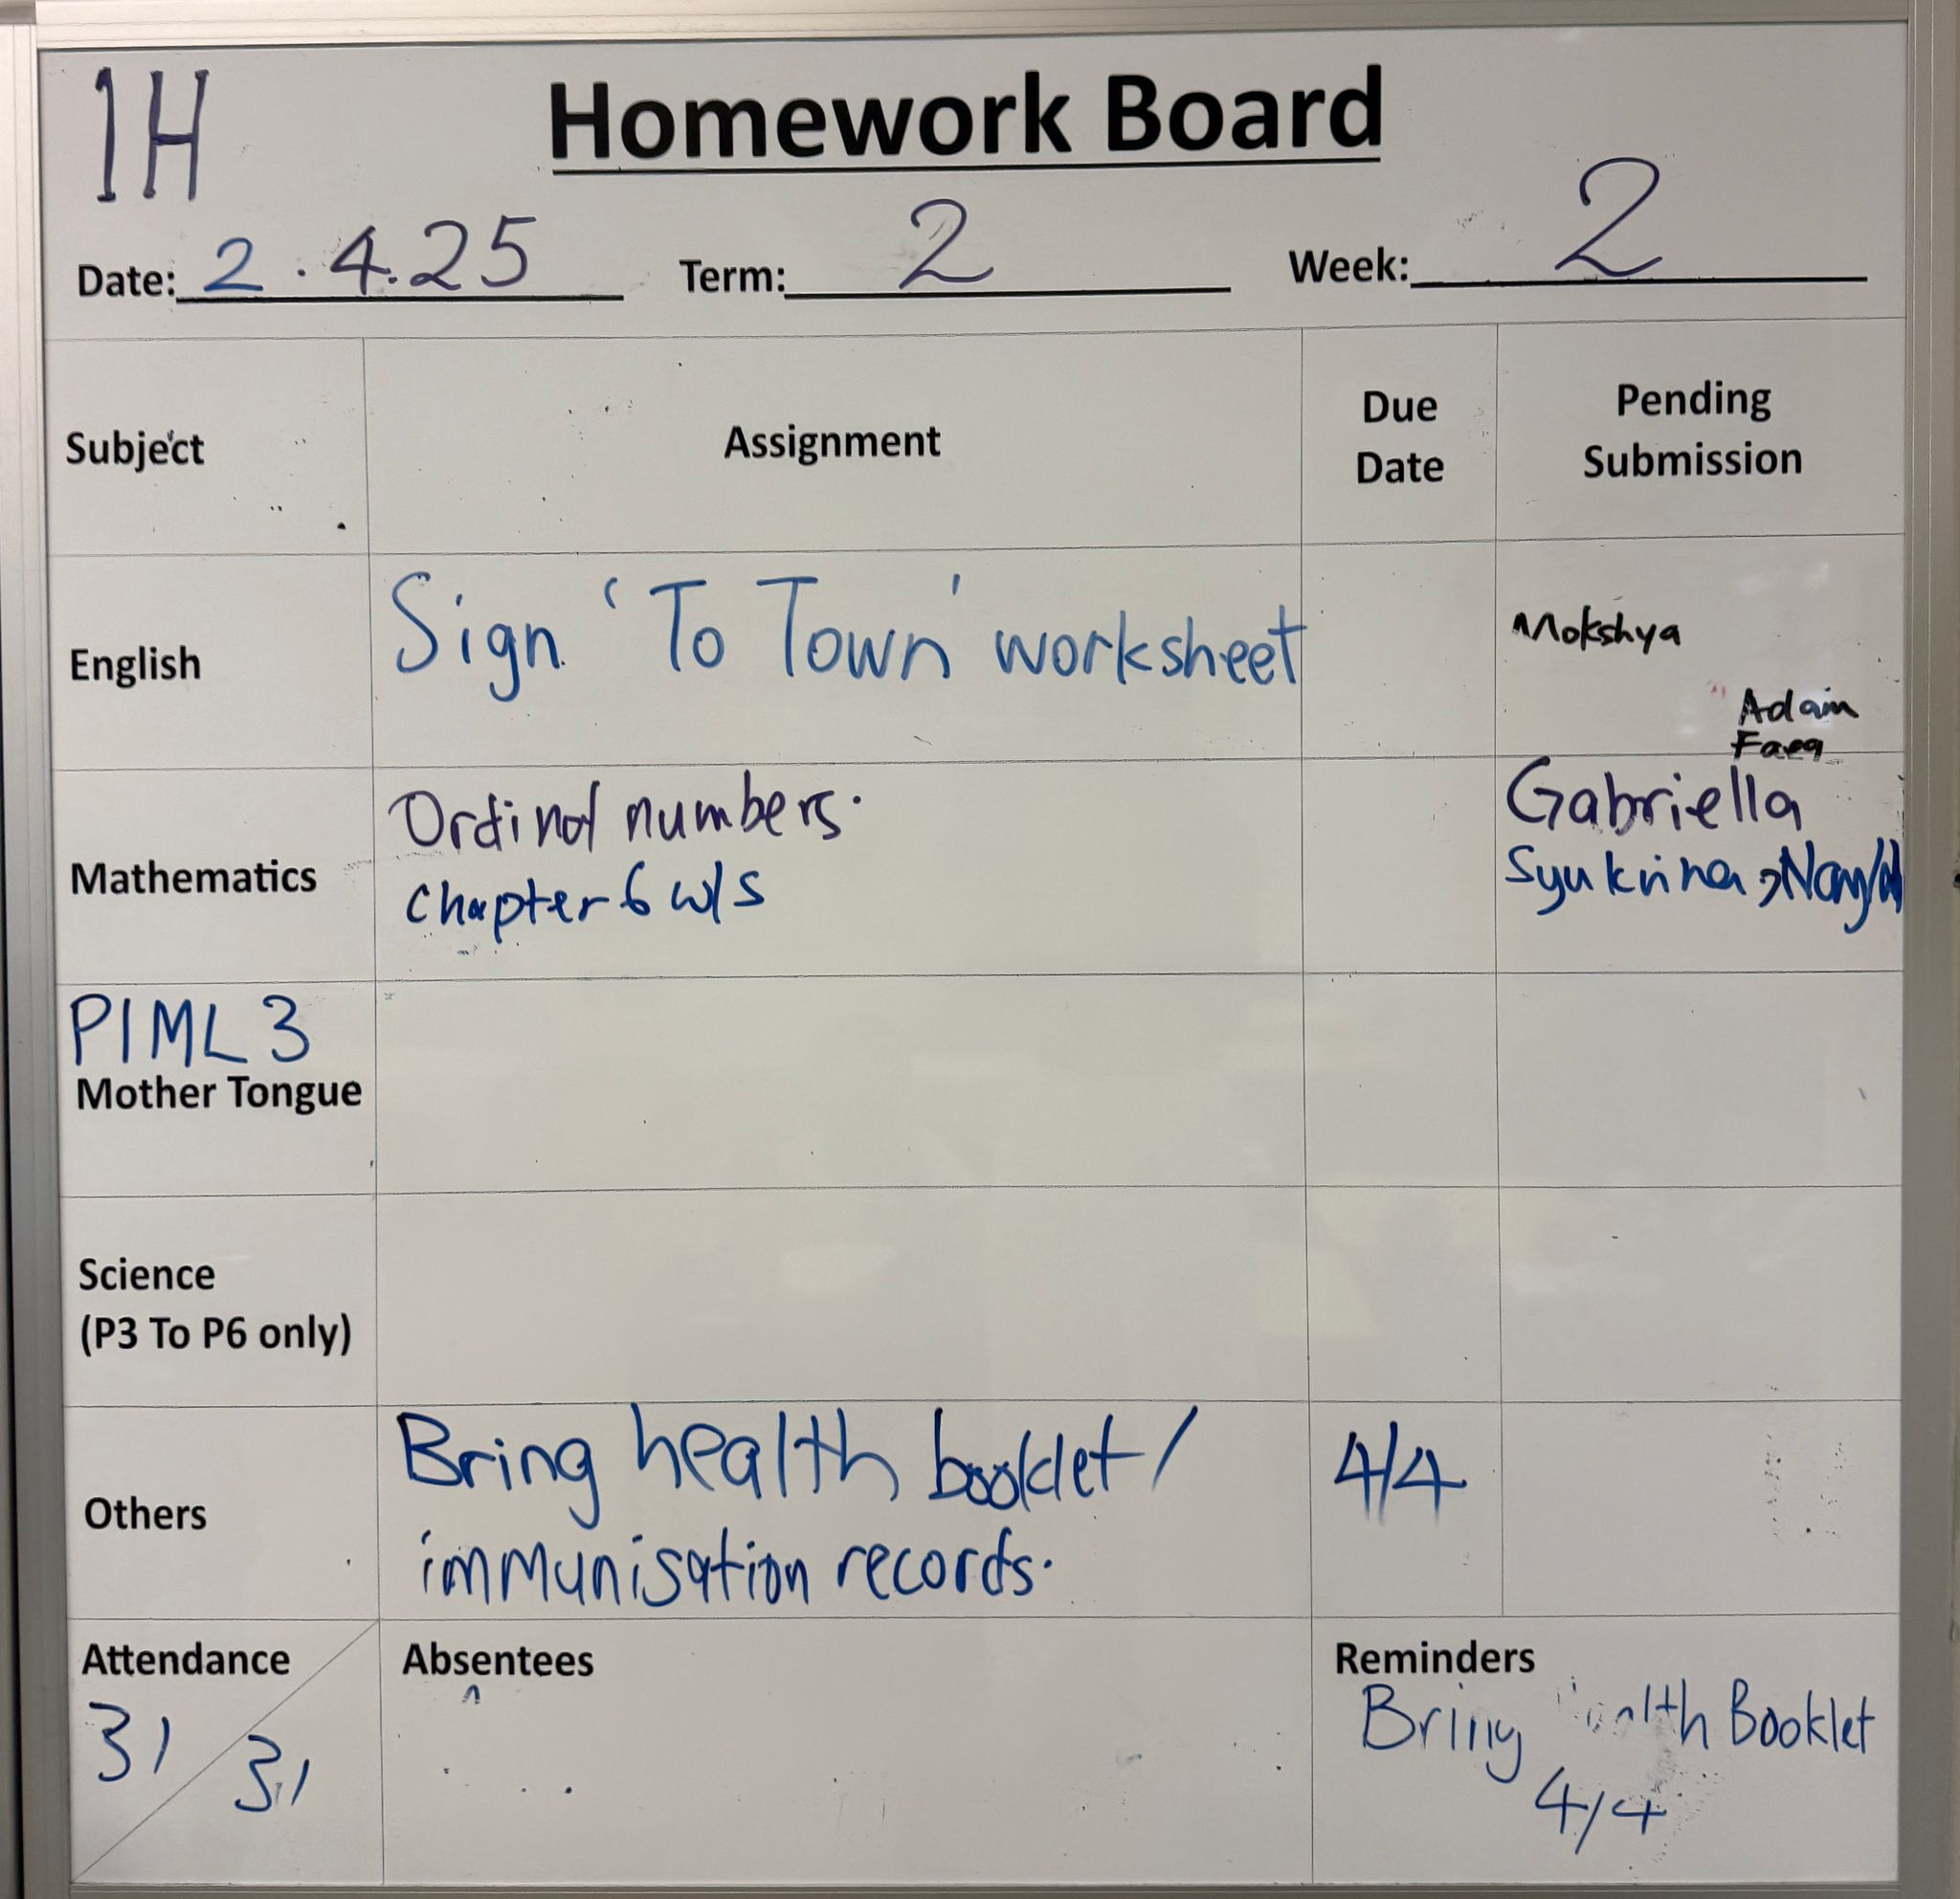 1H
Homework Board
Date: 2.4.25 Term: 2 Week: 2
Subject Assignment Due Date Pending Submission
English Sign 'To Town' worksheet Mokshya
Adam
Faeq
Mathematics Ordinal numbers. Gabriella
chapter 6 w/s Syukrina,
P1ML3
Mother Tongue
Science
(P3 To P6 only)
Others Bring health booklet/ 4/4
immunisation records.
Attendance Absentees Reminders
31/31 Bring Health Booklet
4/4